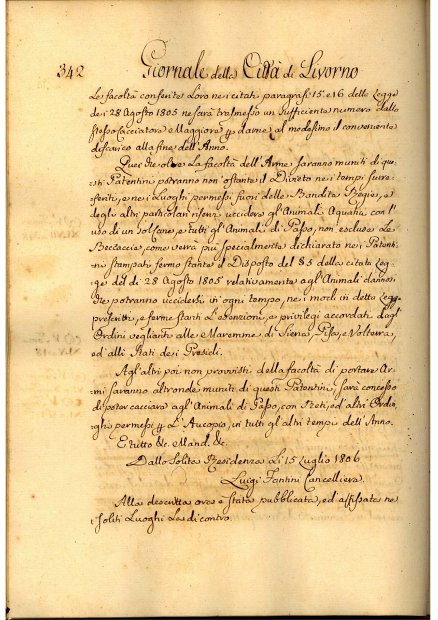 342 Giornale della Città di Livorno
Le facoltà conferite Loro ne i citati paragrafi 15. e 16 della Legge
de i 28 Agosto 1805 ne sarà trasmesso un sufficiente numero dallo
stesso Cacciatore Maggiore p darne al medesimo il conveniente
discarico alla fine dell'Anno.
Quei che oltre la facoltà dell'Arme saranno muniti di que-
sti Patentini potranno non'ostante il Divieto ne i tempi surre-
feriti, e ne i Luoghi permessi fuori delle Bandite Regie, e
degl'altri particolari riservi uccidere gl'Animali Aquatici con l'
uso di un sol Cane, e tutti gl'Animali di Passo, non esclusa La
Beccaccia, come verrà più specialmente dichiarato ne i Patenti-
ni stampati fermo stante il Disposto del § 5 della citata Leg-
ge del dì 28 Agosto 1805 relativamente agl'Animali dannosi
che potranno uccidersi in ogni tempo, ne i modi in detta Legge
prescritti, e ferme stanti L'esenzioni, e privilegj accordati dagli
Ordini veglianti alle Maremme di Siena, Pisa, e Volterra,
ed'alli Stati de i Presidi.
Agl'altri poi non provvisti della facoltà di portare Ar-
mi saranno altronde muniti di questi Patentini, sarà concesso
di poter cacciare agl'Animali di Passo, con Reti, ed'altri Ordin-
ghi permessi p L'Aucupio, in tutti gl'altri tempi dell'Anno.
E tutto &c. Mand. &c.
Dalla Solita Residenza Li 15 Luglio 1806
Luigi Fantini Cancelliere.
Alla descritta ora è stata pubblicata, ed'affissata ne
i soliti Luoghi La di contro.